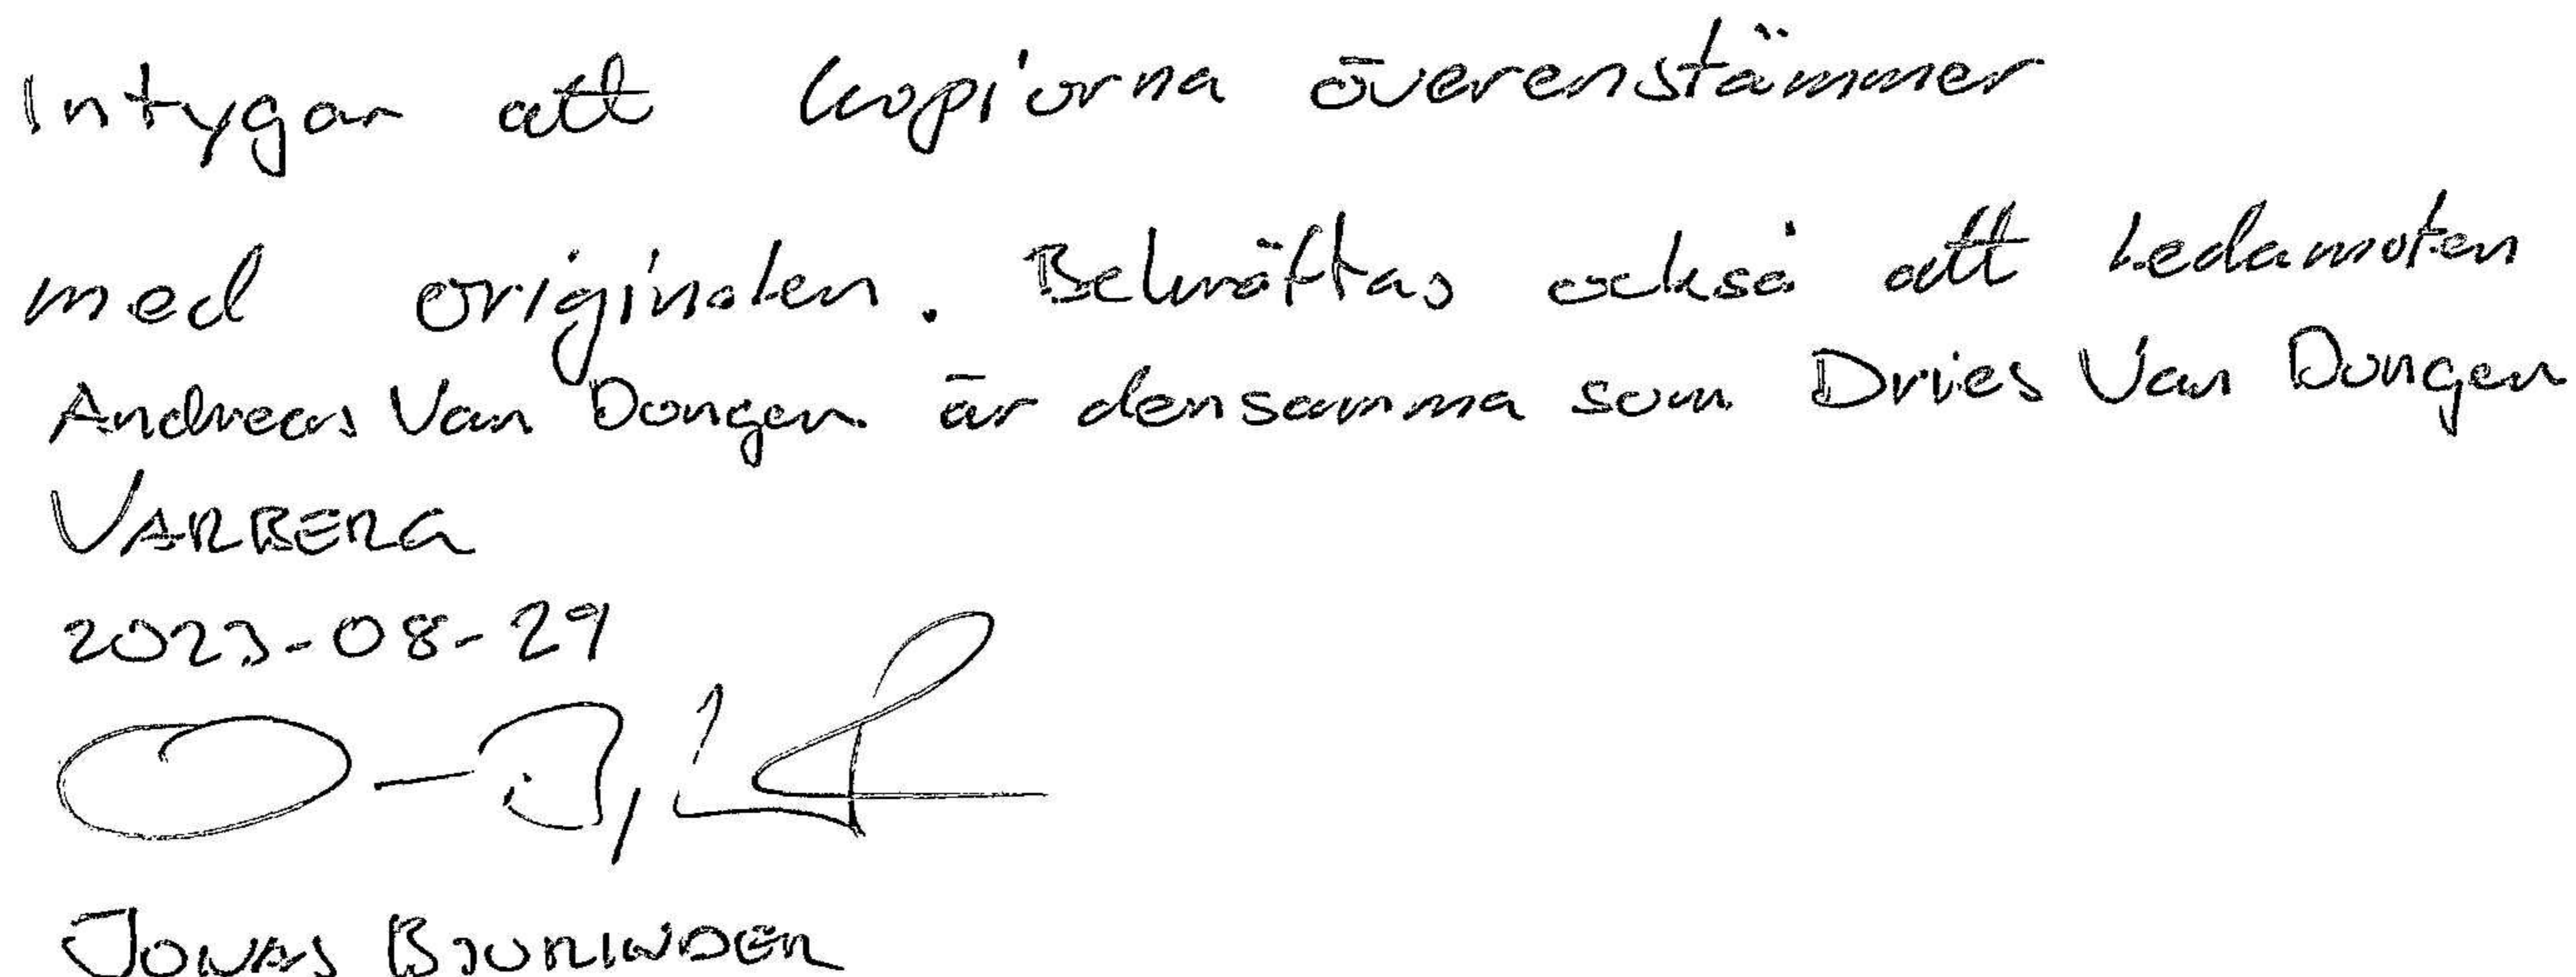 Intygar att kopiorna överenstämmer
med originalen. Bekräftas också att Ledamoten
Andreas Van Dongen är densamma som Dries Van Dongen
VARBERG
2023-08-29
JONAS BJURINDER